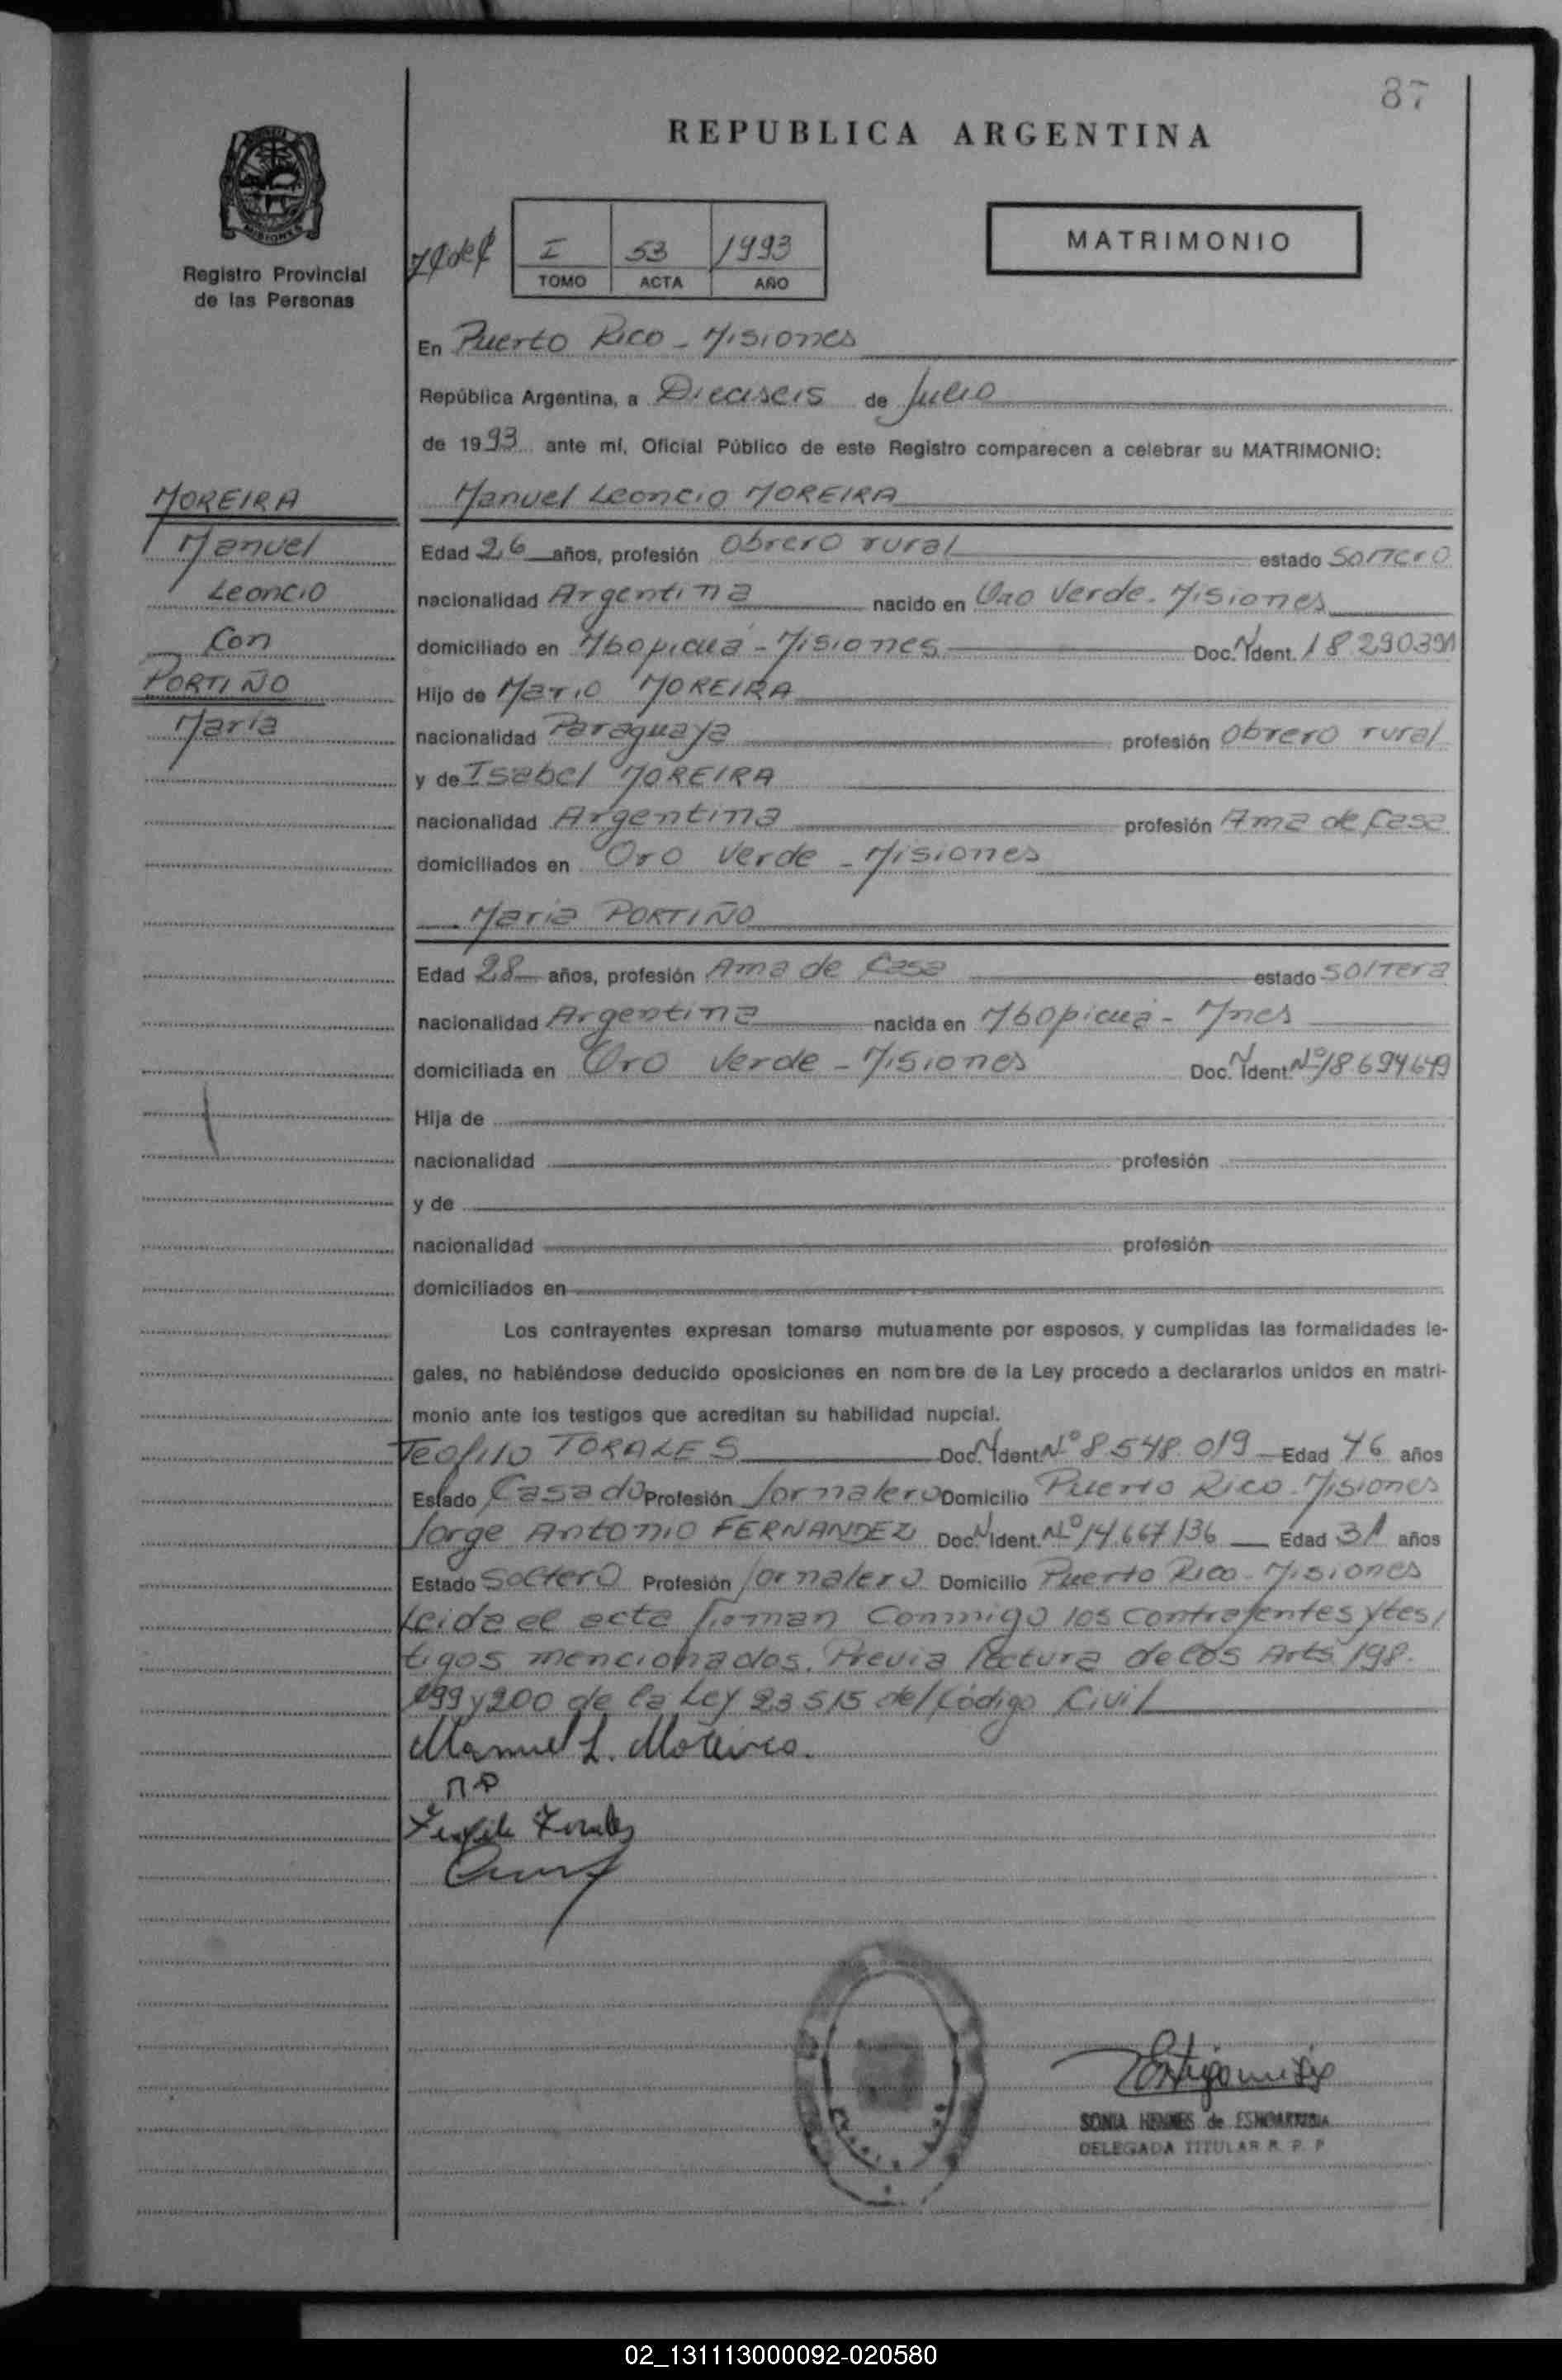 87
REPUBLICA ARGENTINA
MISIONES
Registro Provincial
de las Personas
I 53 1993
TOMO ACTA AÑO
MATRIMONIO
En Puerto Rico - Misiones
República Argentina, a Dieciseis de Julio
de 1993 ante mí, Oficial Público de este Registro comparecen a celebrar su MATRIMONIO:
MOREIRA
Manuel
Leoncio
Con
PORTIÑO
María
Manuel Leoncio MOREIRA
Edad 26 años, profesión Obrero rural estado Soltero
nacionalidad Argentina nacido en Oro Verde - Misiones
domiciliado en Mbopicuá - Misiones Doc. N Ident. 18.290.391
Hijo de Mario MOREIRA
nacionalidad Paraguaya profesión Obrero rural
y de Isabel MOREIRA
nacionalidad Argentina profesión Ama de Casa
domiciliados en Oro Verde - Misiones
María PORTIÑO
Edad 28 años, profesión Ama de Casa estado Soltera
nacionalidad Argentina nacida en Mbopicuá - Mnes
domiciliada en Oro Verde - Misiones Doc. N Ident. Nº 18.694.649
Hija de
nacionalidad profesión
y de
nacionalidad profesión
domiciliados en
Los contrayentes expresan tomarse mutuamente por esposos, y cumplidas las formalidades le-
gales, no habiéndose deducido oposiciones en nombre de la Ley procedo a declararlos unidos en matri-
monio ante los testigos que acreditan su habilidad nupcial.
Teofilo TORALES Doc. N Ident. Nº 8.548.019 Edad 46 años
Estado Casado Profesión Jornalero Domicilio Puerto Rico - Misiones
Jorge Antonio FERNANDEZ Doc. N Ident. Nº 14.667.136 Edad 31 años
Estado Soltero Profesión Jornalero Domicilio Puerto Rico - Misiones
Leida el acta firman Conmigo los contrayentes y tes,
tigos mencionados. Previa lectura de los Arts 198.
199 y 200 de la Ley 23515 del Código Civil
Manuel L. Moreira.
SONIA HENNES de
DELEGADA TITULAR R. P. P
02_131113000092-020580